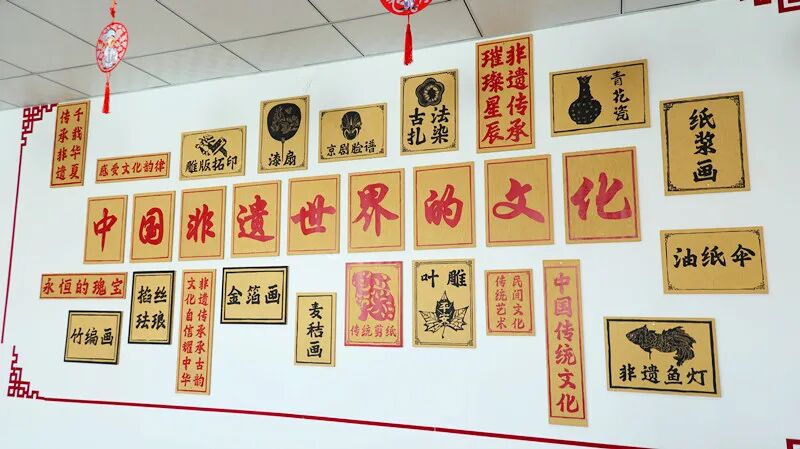 千载华夏
传承非遗
感受文化韵律
雕版拓印
漆扇
京剧脸谱
古法
扎染
非遗传承
璀璨星辰
青花瓷
纸浆画
中国非遗世界的文化
永恒的瑰宝
竹编画
掐丝
珐琅
非遗传承承古韵
文化自信耀中华
金箔画
麦秸画
传统剪纸
叶雕
民间文化
传统艺术
中国传统文化
油纸伞
非遗鱼灯